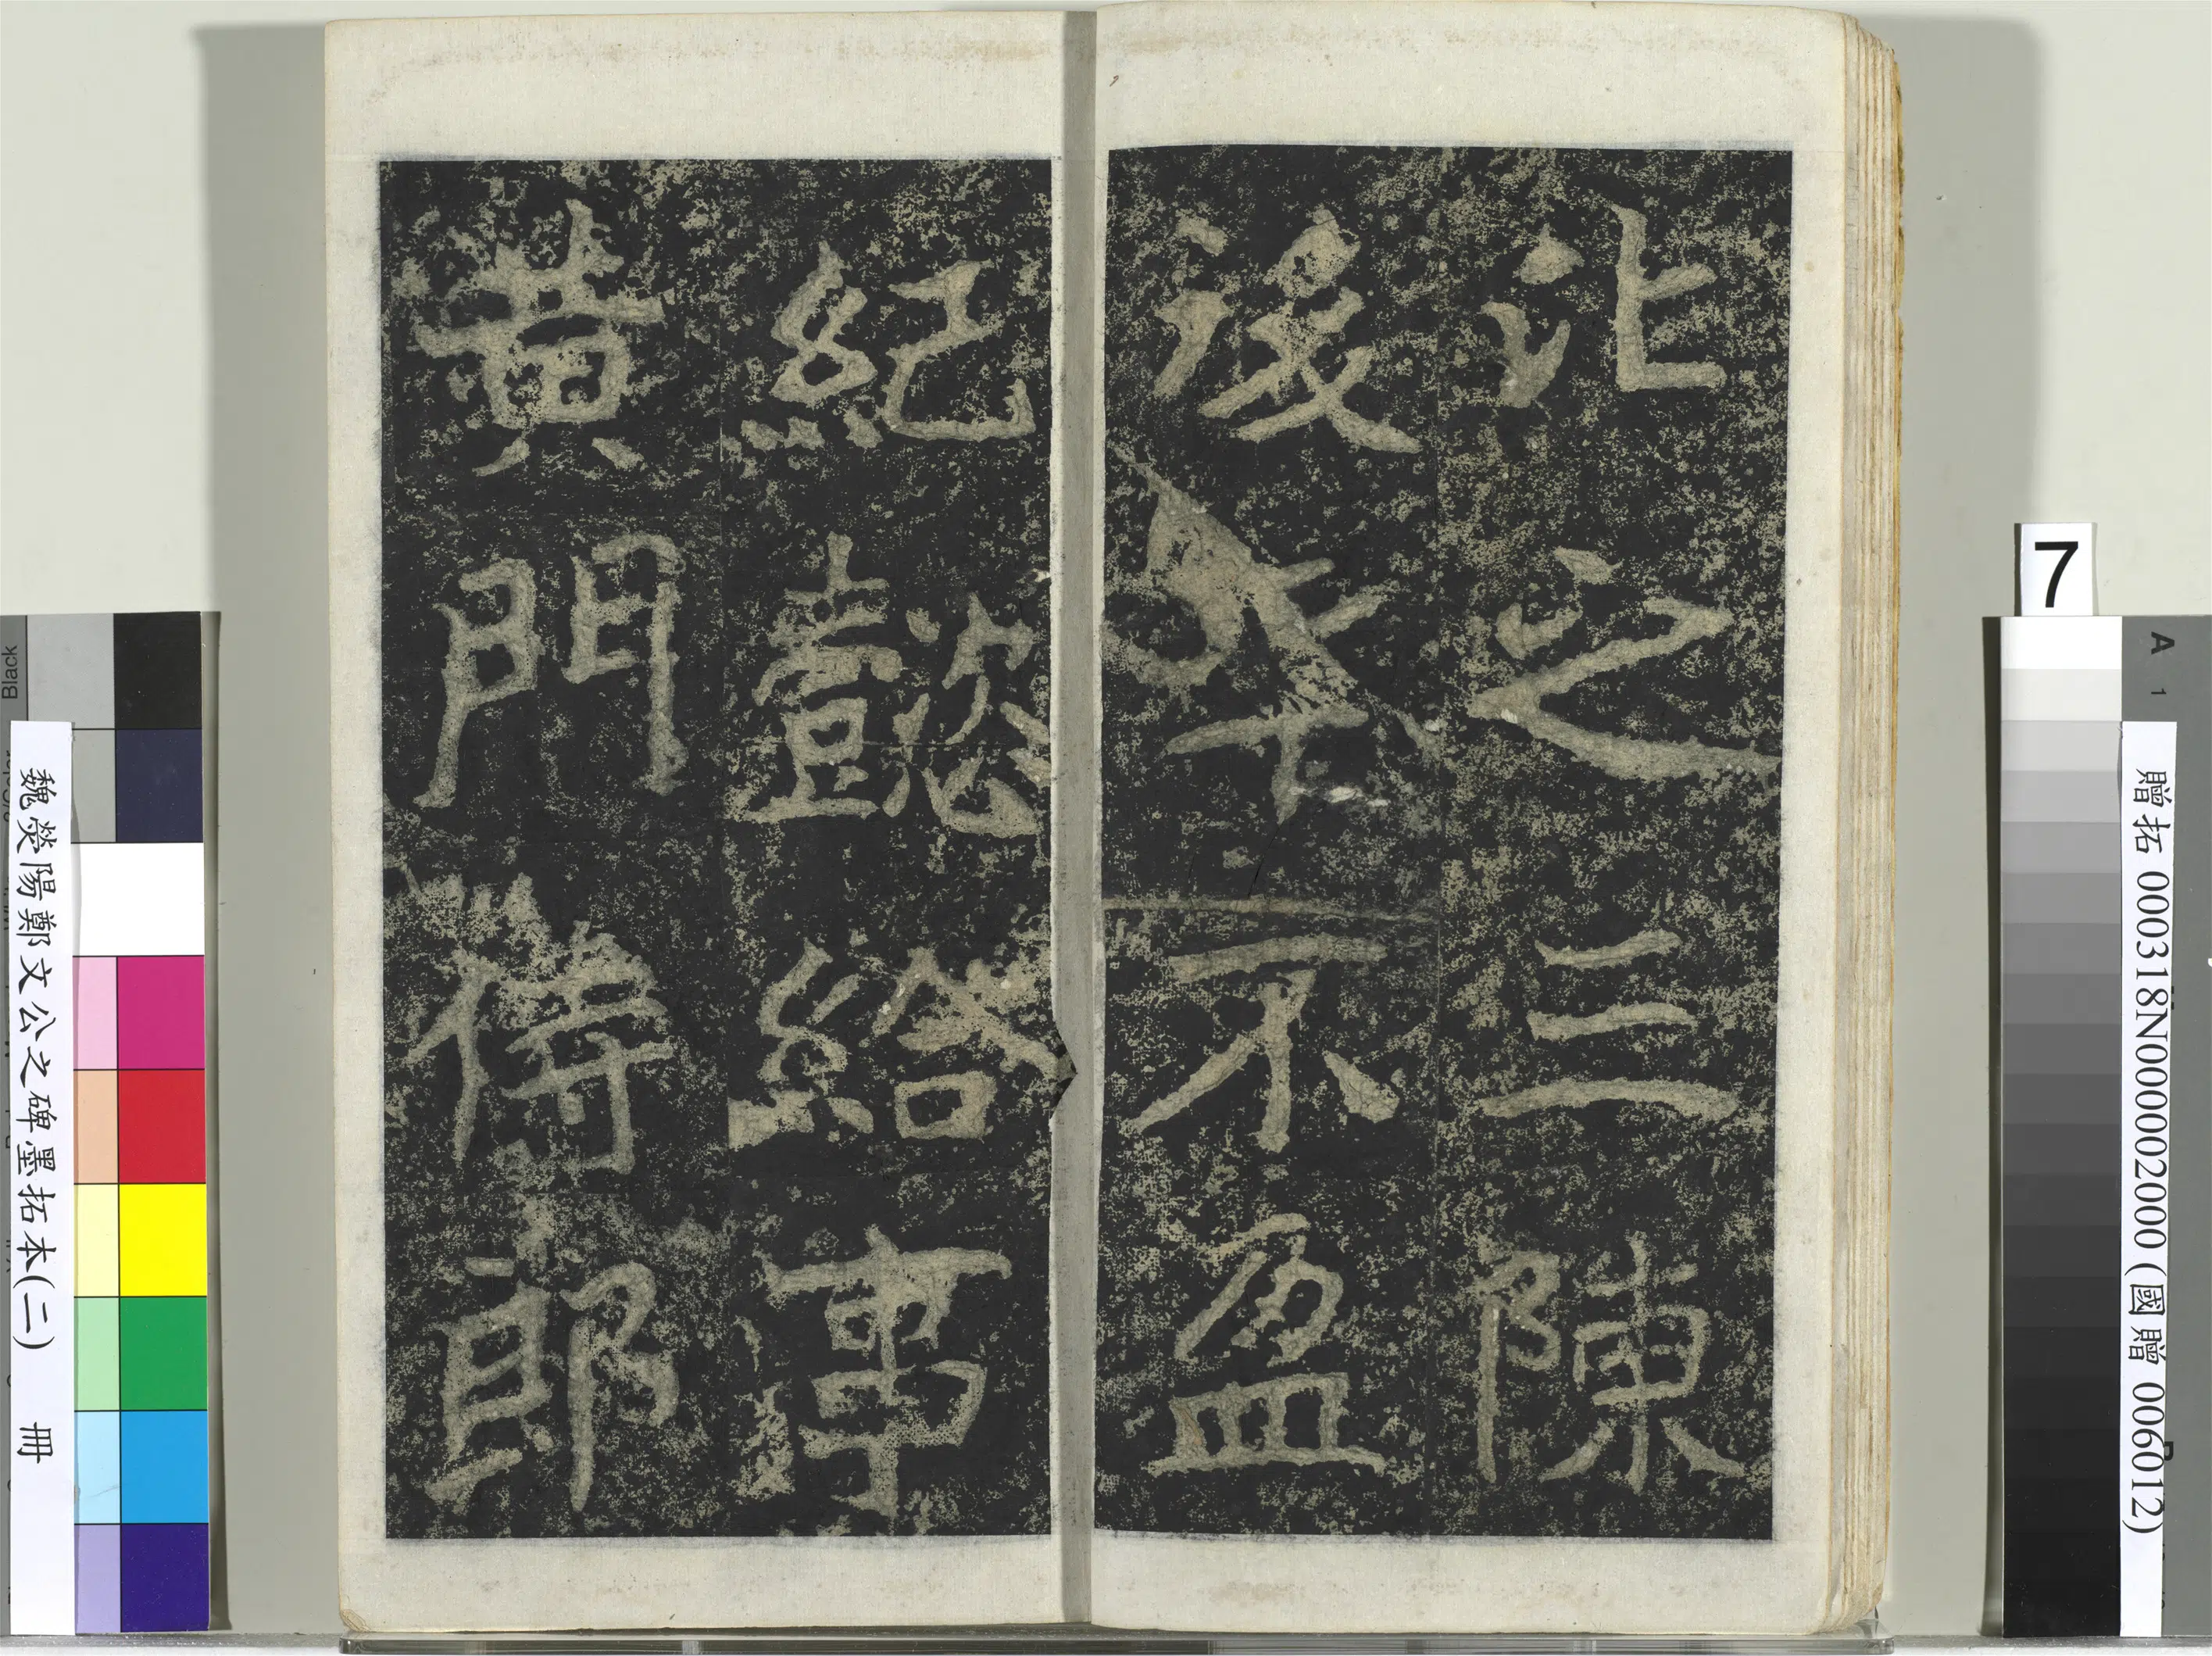 比之三陳
後年不盈
紀懿給事
黃門侍郎
魏滎陽鄭文公之碑墨拓本(二) 冊
贈拓 000318N000002000 (國贈 006012)
7
A
1
Black